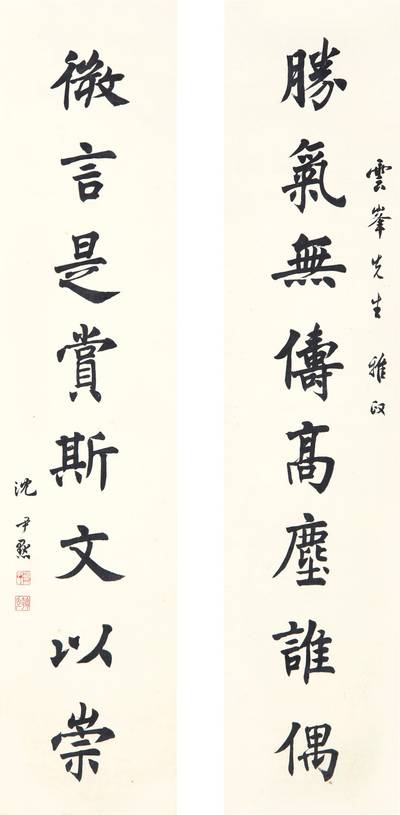 雲峯先生 雅政
勝氣無儔高塵誰偶
微言是賞斯文以崇
沈尹默